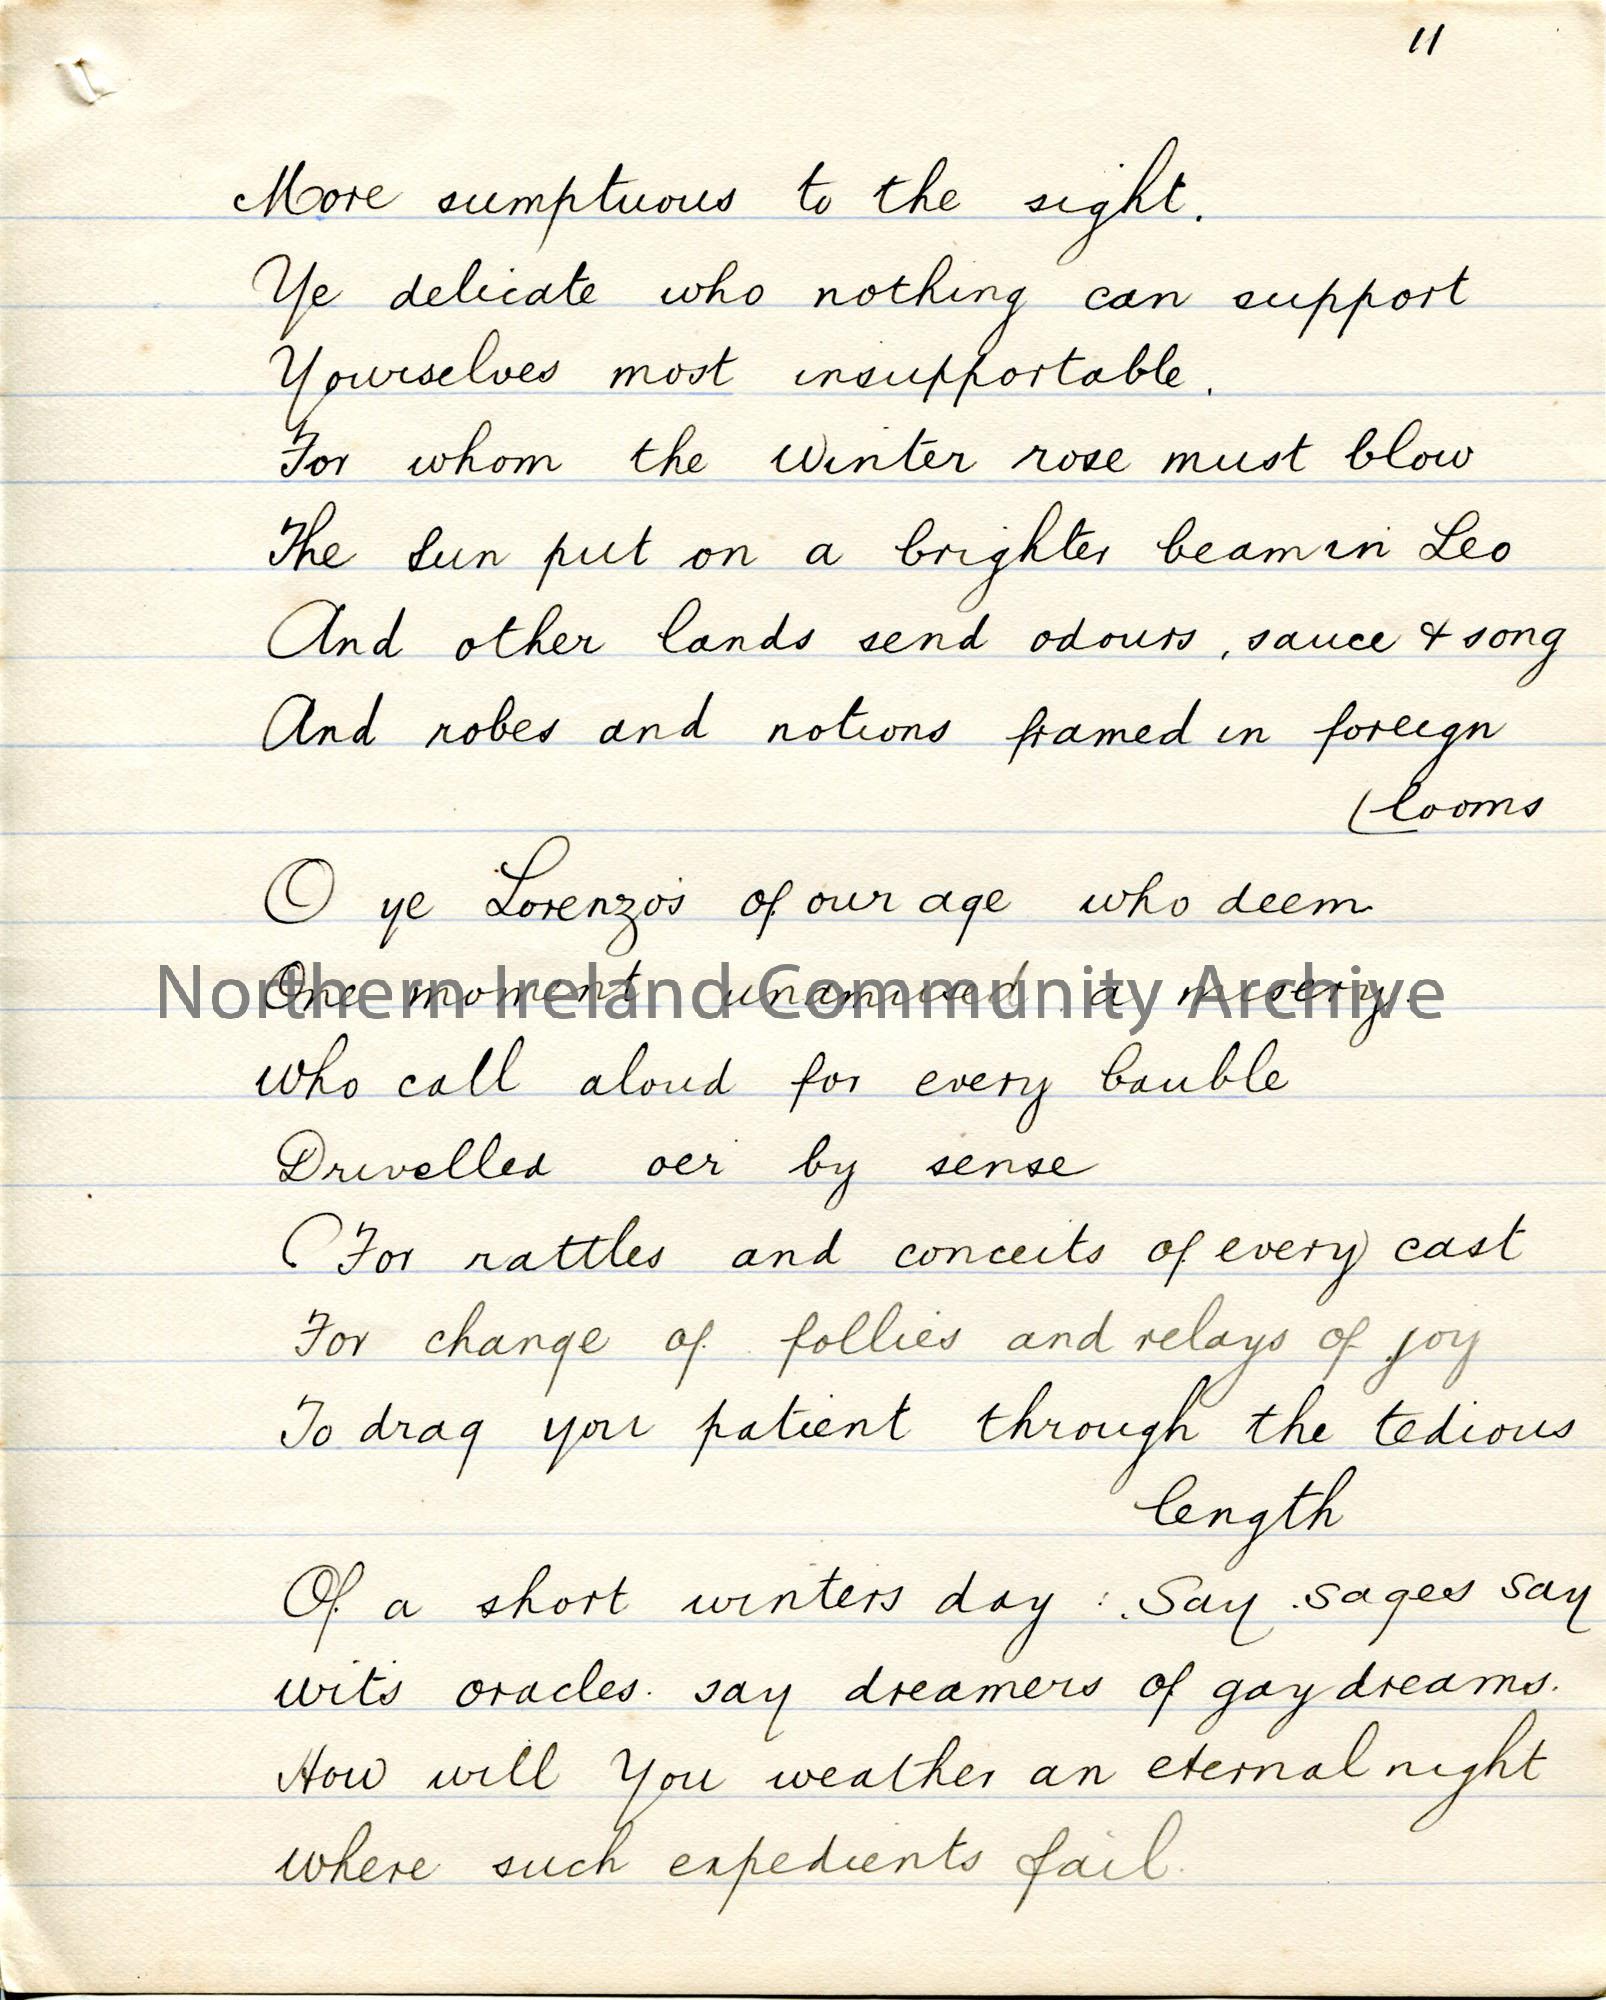 11
More sumptuous to the sight.
Ye delicate who nothing can support
Yourselves most insupportable.
For whom the Winter rose must blow
The Sun put on a brighter beam in Leo
And other lands send odours, sauce & song
And robes and notions framed in foreign
(looms
O ye Lorenzo's of our age who deem
One moment unamused a misery.
Northern Ireland Community Archive
Who call aloud for every bauble
Drivelled oer by sense
(For rattles and conceits of every) cast
For change of follies and relays of joy
To drag your patient through the tedious
length
Of a short winters day : Say sages say
wit's oracles. say dreamers of gay dreams.
How will You weather an eternal night
where such expedients fail.